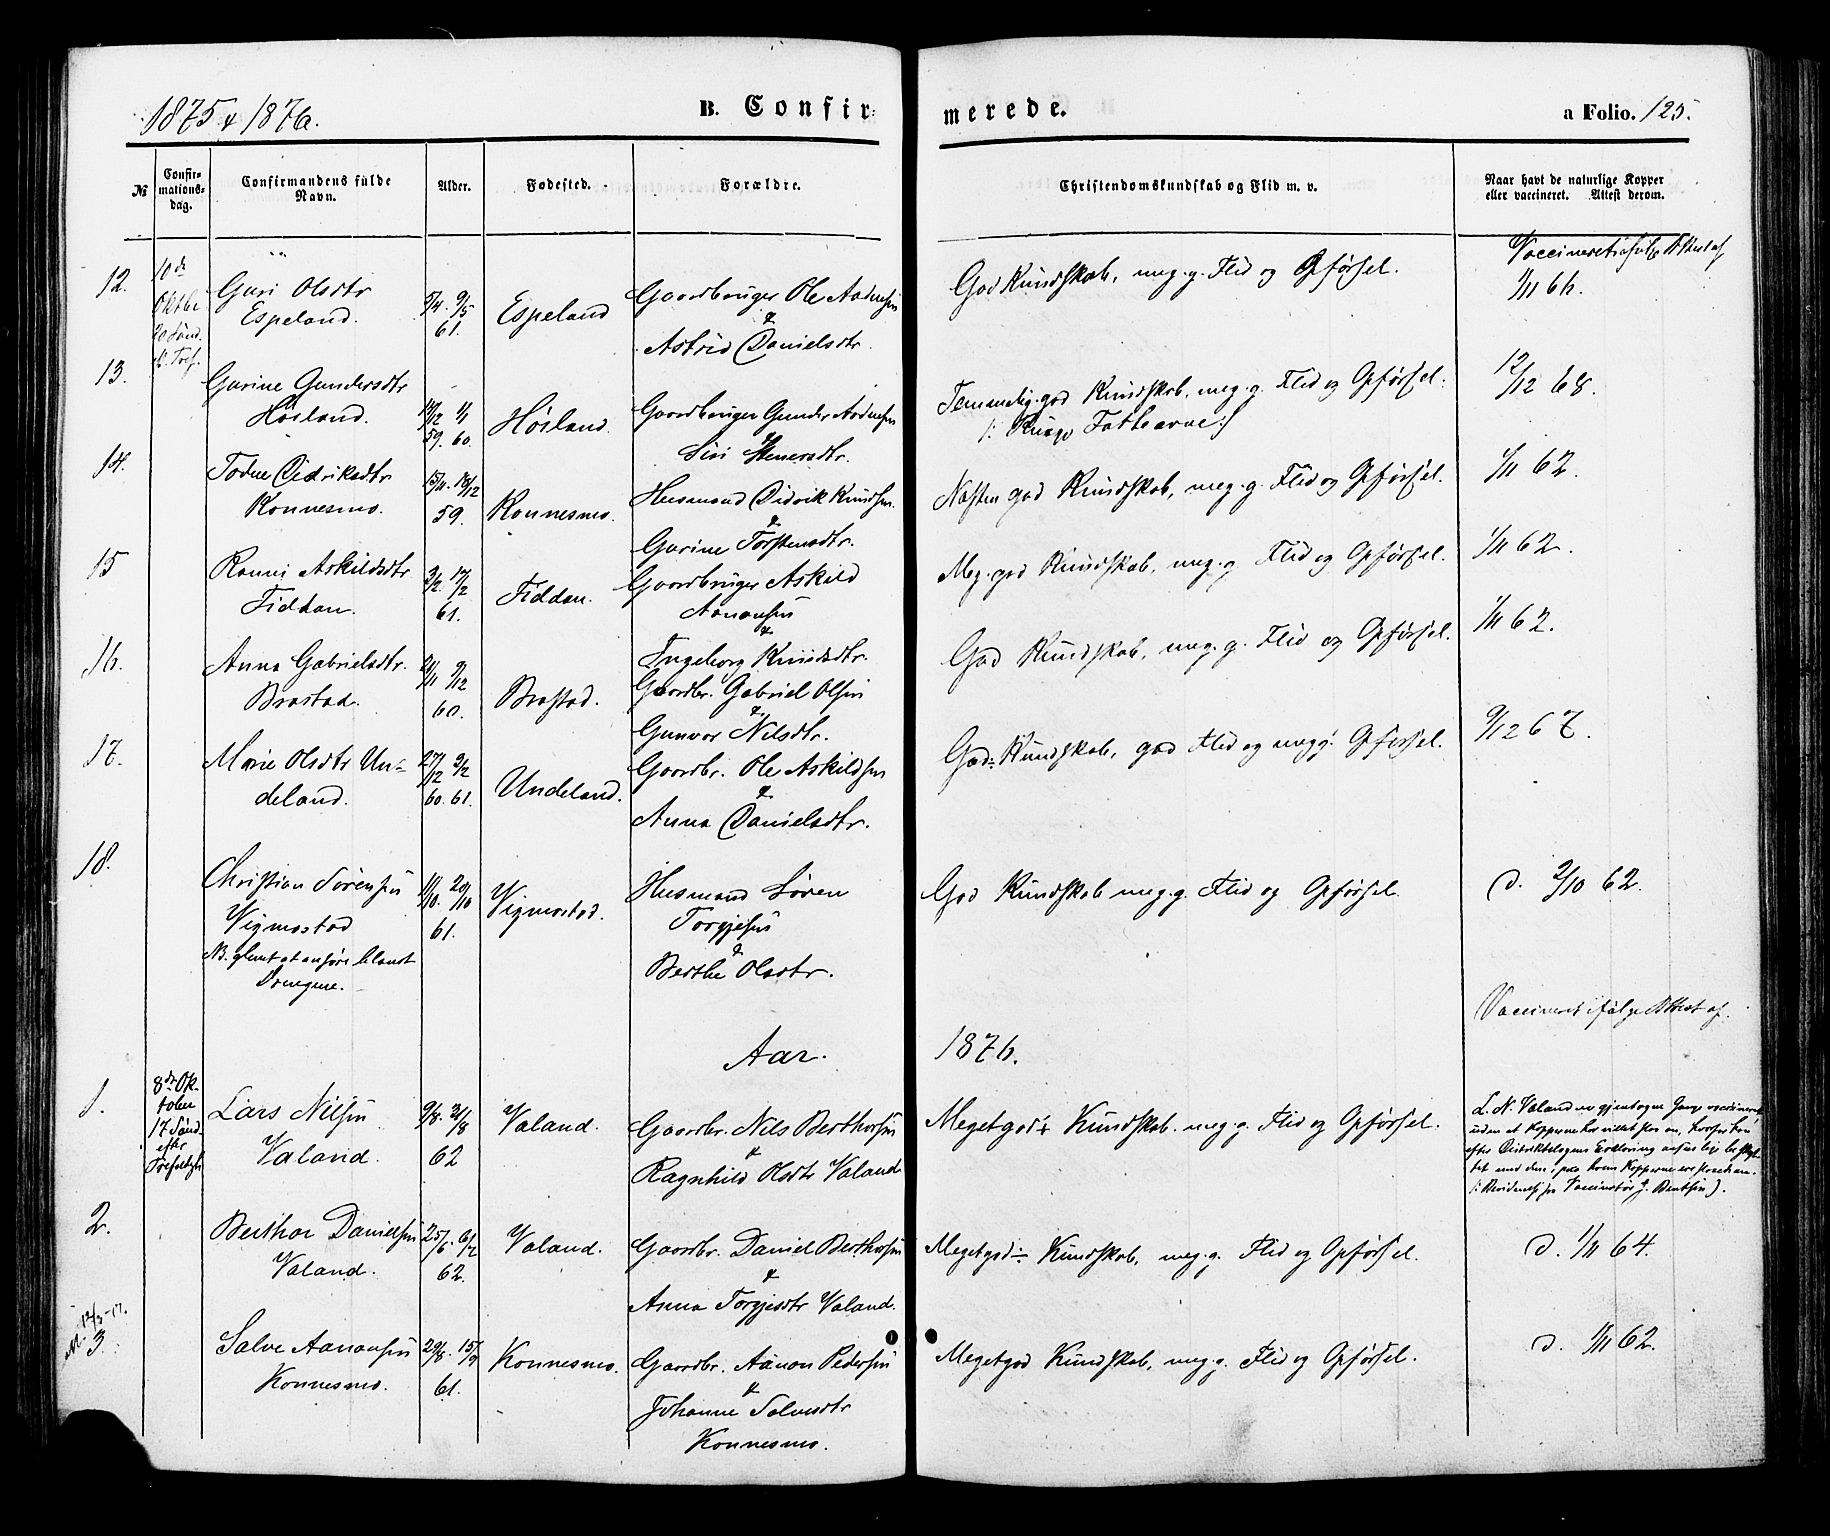 1875 & 1876.
B. Confirmerede.
a Folio. 125.
№
Confirmationsdag.
Confirmandens fulde Navn.
Alder.
Fødested.
Forældre.
Christendomskundskab og Flid m. v.
Naar havt de naturlige Kopper eller vaccineret. Attest derom.
Vaccineret ifølge Attest af
12.
10de
Oktbr
20 Sønd.
e. Tref.
Guri Olsdtr
Espeland.
5/4 9/5
61.
Espeland
Gaardbruger Ole Aadnesen
&
Astrid Danielsdtr.
God Kundskab, meg. g. Flid og Opførsel.
1/11 66.
13.
Gurine Gundersdtr
Høsland.
14/12 1/1
59. 60.
Høsland.
Gaardbruger Gunder Aadnesen
&
Siri Stenersdtr.
Temmelig god Kundskab, meg. g. Flid og Opførsel.
/: Svage Fatteevne :/
12/12 68.
14.
Todne Didriksdtr
Konnesmo.
15/11. 18/12
59.
Konnesmo.
Husmand Didrik Knudsen
&
Gurine Torstensdtr.
Næsten god Kundskab, meg. g. Flid og Opførsel.
1/11 62.
15
Ronni Askildsdtr
Fiddan.
3/2. 17/2
61.
Fiddan.
Gaardbruger Askild
Aanonsen
&
Ingeborg Knudsdtr.
Meg. god Kundskab, meg. g. Flid og Opførsel.
1/11 62.
16.
Anna Gabrielsdtr.
Brastad.
2/11 9/12
60.
Brastad.
Gaardbr. Gabriel Olsen
&
Gunvor Nilsdtr.
God Kundskab, meg. g. Flid og Opførsel.
1/11 62.
17.
Marie Olsdtr Un-
deland.
27/12 2/2
60. 61.
Undeland.
Gaardbr. Ole Askildsen
&
Anna Danielsdtr.
God÷ Kundskab, god Flid og meg g. Opførsel.
9/12 67.
18.
Christian Sørensen
Vigmostad
NB. glemt at anføre blandt
Drengene.
11/10. 20/10
61.
Vigmostad.
Husmand Søren
Torgjesen
&
Berthe Olsdtr.
God Kundskab meg. g. Flid og Opførsel.
d. 2/10 62.
Aar.
1876.
Vaccineret ifølge Attest af.
1.
8de Ok-
tober
17 Sønd.
eftr
Trefoldigh
Lars Nilsen
Valand.
9/8. 31/8
62
Valand.
Gaardbr. Nils Berthorsen
&
Ragnhild Olsdtr Valand
Meget god÷ Kundskab. meg. g. Flid og Opførsel.
L. N. Valand er gjentagne Gange vaccineret,
uden at Kopperne har villet slaa an, hvorfor han
efter Distriktslægens Erklæring ansees lige beskyt-
tet med dem, paa hvem Kopperne ere slaaede an.
2.
Berthor Danielsen
Valand.
25/6. 6/7
62.
Valand.
Gaardbr. Daniel Berthorsen
&
Anna Torgjesdtr Valand.
Meget god÷ Kundskab, meg. g. Flid og Opførsel.
d. 1/11 64.
3.
Salve Aanonsen
Konnesmo.
29/8. 15/9
61.
Konnesmo.
Gaardbr. Aanon Pedersen
&
Johanne Salvesdtr
Konnesmo.
Meget god Kundskab, meg. g. Flid og Opførsel.
d. 1/11 62.